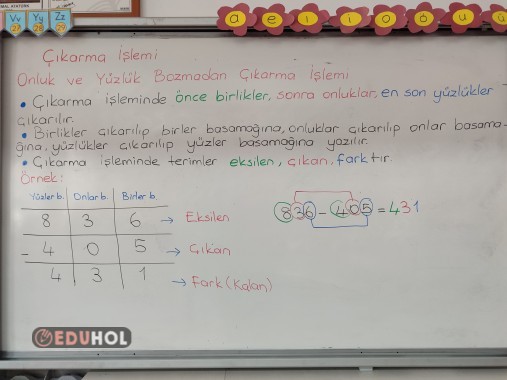 Vv Yy Zz
27 28 29
a e ı i o ö u ü
Çıkarma İşlemi
Onluk ve Yüzlük Bozmadan Çıkarma İşlemi
• Çıkarma işleminde önce birlikler, sonra onluklar, en son yüzlükler
çıkarılır.
• Birlikler çıkarılıp birler basamağına, onluklar çıkarılıp onlar basama-
ğına, yüzlükler çıkarılıp yüzler basamağına yazılır.
• Çıkarma işleminde terimler eksilen, çıkan, farktır.
Örnek:
Yüzler b. Onlar b. Birler b.
8 3 6 → Eksilen
- 4 0 5 → Çıkan
4 3 1 → Fark (Kalan)
836 - 405 = 431
EDUHOL